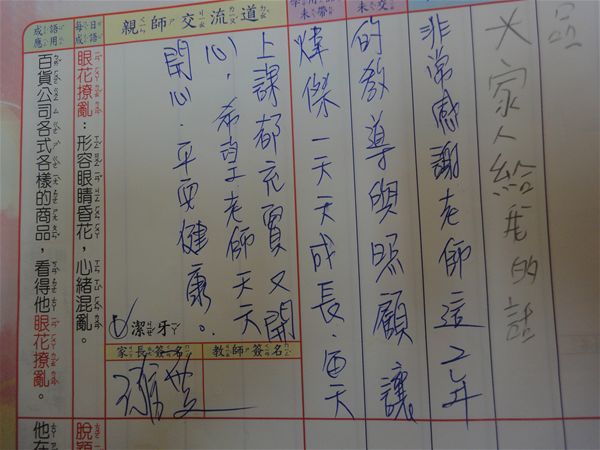 品
大家人給我的話
未交
未帶
非常感謝老師這2年
的教導與照顧,讓
煒傑一天天成長,每天
親師交流道
上課都充實又開
心,希望老師天天
開心.平安健康。
潔牙
教師簽名
家長簽名
每日成語
眼花撩亂:形容眼睛昏花,心緒混亂。
成語應用
百貨公司各式各樣的商品,看得他眼花撩亂。
脫穎
他在